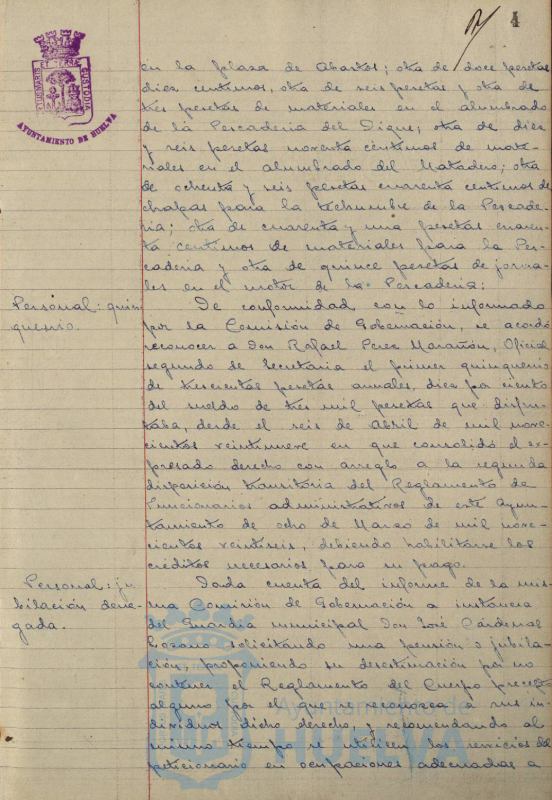 4
en la plaza de Abastos; otra de doce pesetas
diez centimos, otra de seis pesetas y otra de
tres pesetas de materiales en el alumbrado
de la Pescaderia del Dique; otra de diez
y seis pesetas noventa centimos de mate-
riales en el alumbrado del Matadero; otra
de ochenta y seis pesetas cuarenta centimos de
chapas para la techumbre de la Pescade-
ria; otra de cuarenta y una pesetas cuaren-
ta centimos de materiales para la Pes-
caderia y otra de quince pesetas de jorna-
les en el motor de la Pescaderia:
Personal: quin-
quenio.
De conformidad con lo informado
por la Comisión de Gobernación, se acordó
reconocer a Don Rafael Perez Marañón, Oficial
segundo de Secretaria el primer quinquenio
de trescientas pesetas anuales, diez por ciento
del sueldo de tres mil pesetas que disfru-
taba, desde el seis de Abril de mil nove-
cientos veintinueve en que consolidó el ex-
presado derecho con arreglo a la segunda
disposición transitoria del Reglamento de
Funcionarios administrativos de este Ayun-
tamiento de ocho de Marzo de mil nove-
cientos veintiseis, debiendo habilitarse los
créditos necesarios para su pago.
Personal: ju-
bilación dene-
gada.
Dada cuenta del informe de la mis-
ma Comisión de Gobernación a instancia
del Guardia municipal Don José Cárdenas
Lozano solicitando una pensión o jubila-
ción, proponiendo su desestimación por no
contener el Reglamento del Cuerpo precepto
alguno por el que se reconozca a sus in-
dividuos dicho derecho, y recomendando al
mismo tiempo se utilicen los servicios del
peticionario en ocupaciones adecuadas a
AYUNTAMIENTO DE HUELVA
CUSTODIA
Ayuntamiento de
HUELVA